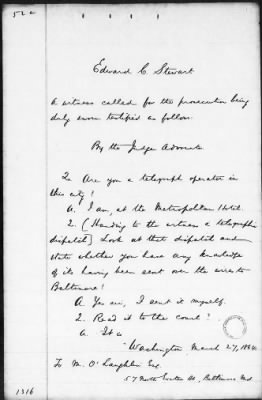 52a
Edward C. Stewart
a witness called for the prosecution being
duly sworn testified as follows
By the Judge Advocate
Q. Are you a telegraph operator in
this city?
A. I am, at the Metropolitan Hotel.
Q. (Handing to the witness a telegraphic
dispatch) Look at that dispatch and
state whether you have any knowledge
of its having been sent over the wires to
Baltimore?
A. Yes sir, I sent it myself.
Q. Read it to the court?
A. It is
"Washington, March 27, 1864
To M. O'Laughlin Esq.
57 North Exeter St, Baltimore Md
1316